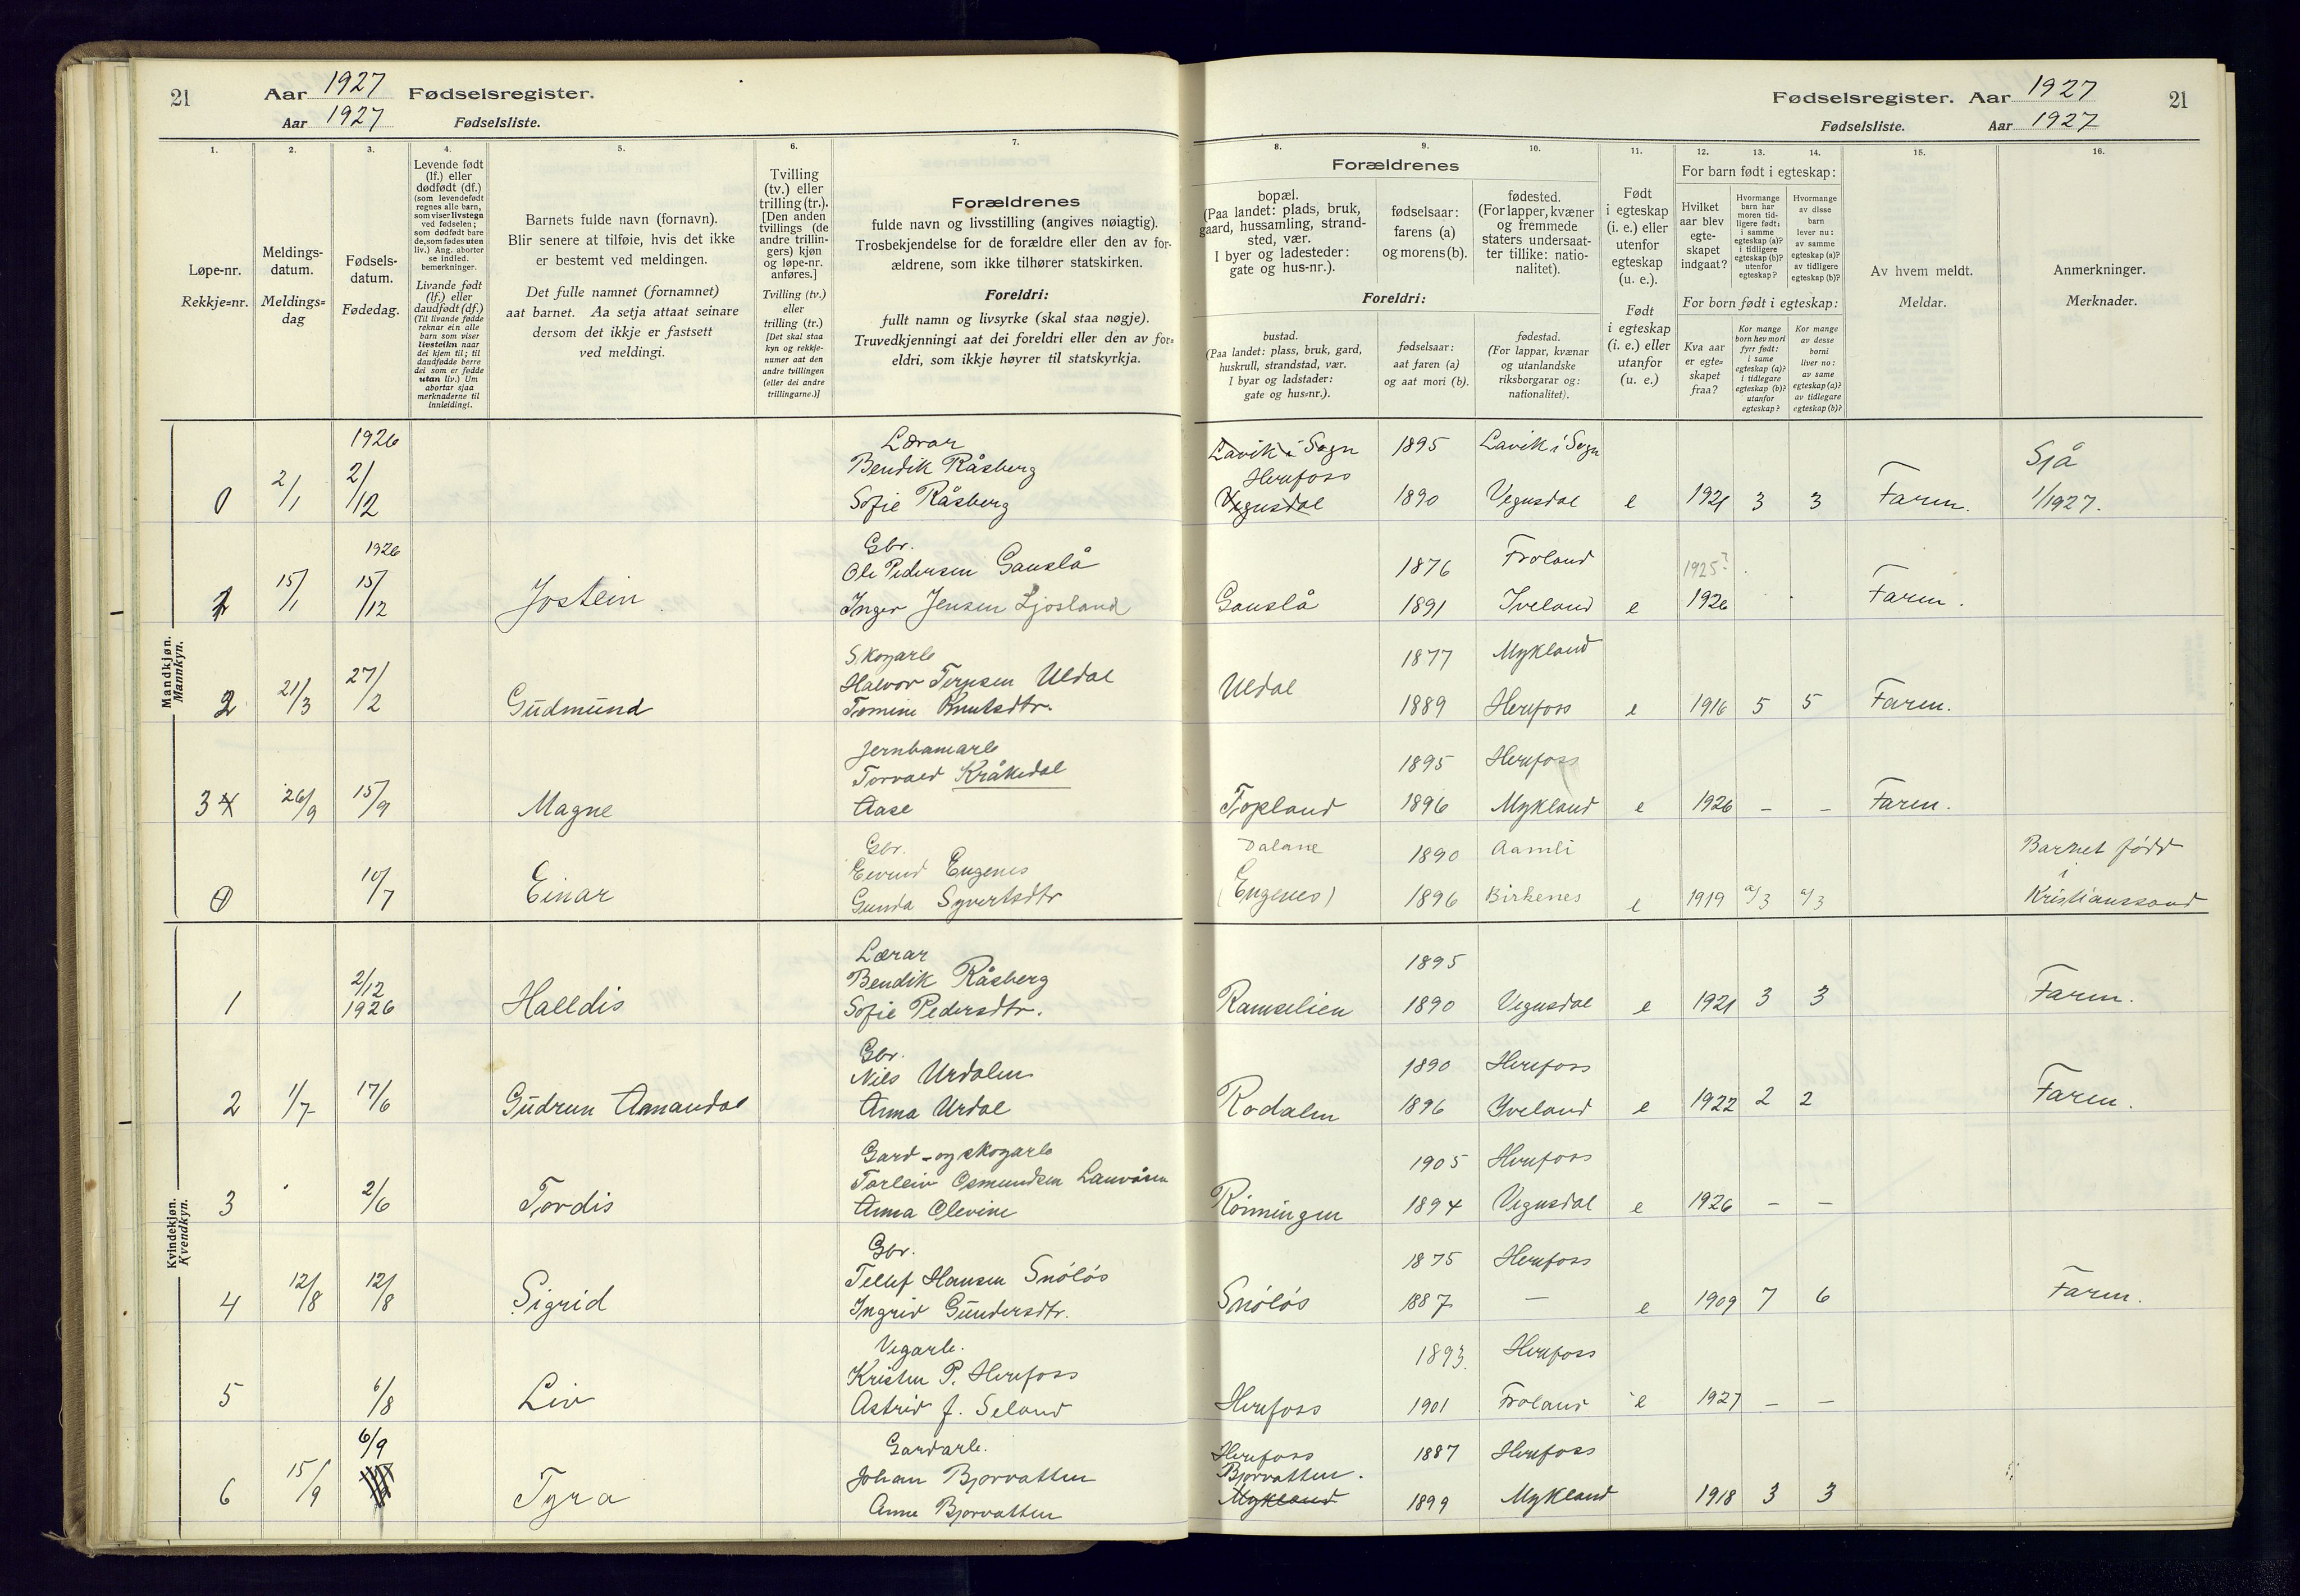 21
Aar 1927 Fødselsregister.
Aar 1927 Fødselsliste.
Fødselsregister. Aar 1927
Fødselsliste. Aar 1927
21
1.
Løpe-nr.
Rekkje=nr.
2.
Meldings-
datum.
Meldings=
dag
3.
Fødsels-
datum.
Fødedag.
4.
Levende født
(lf.) eller
dødfødt (df.)
(som levendefødt
regnes alle barn,
som viser livstegn
ved fødselen;
som dødfødt bare
de, som fødes uten
liv.) Ang. aborter
se indled.
bemerkninger.
Livande født
(lf.) eller
daudfødt (df.)
(Til livande fødde
reknar ein alle
barn som viser
livsteikn naar
dei kjem til; til
daudfødde berre
dei som er fødde
utan liv.) Um
abortar sjaa
merknaderne til
innleidingi.
5.
Barnets fulde navn (fornavn).
Blir senere at tilføie, hvis det ikke
er bestemt ved meldingen.
Det fulle namnet (fornamnet)
aat barnet. Aa setja attaat seinare
dersom det ikkje er fastsett
ved meldingi.
6.
Tvilling
(tv.) eller
trilling (tr.).
[Den anden
tvillings (de
andre trillin-
gers) kjøn
og løpe-nr.
anføres.]
Tvilling (tv.)
eller
trilling (tr.)
[Det skal staa
kyn og rekkje-
numer aat den
andre tvillingen
(eller dei andre
trillingarne.)]
7.
Forældrenes
fulde navn og livsstilling (angives nøiagtig).
Trosbekjendelse for de forældre eller den av for-
ældrene, som ikke tilhører statskirken.
Foreldri:
fullt namn og livsyrke (skal staa nøgje).
Truvedkjenningi aat dei foreldri eller den av for=
eldri, som ikkje høyrer til statskyrkja.
Forældrenes
8.
bopæl.
(Paa landet: plads, bruk,
gaard, hussamling, strand-
sted, vær.
I byer og ladesteder:
gate og hus-nr.).
Foreldri:
bustad.
(Paa landet: plass, bruk, gard,
huskrull, strandstad, vær.
I byar og ladstader:
gate og hus=nr.).
9.
fødselsaar:
farens (a)
og morens (b).
fødselsaar:
aat faren (a)
og aat mori (b).
10.
fødested.
(For lapper, kvæner
og fremmede
staters undersaat-
ter tillike: natio-
nalitet).
fødestad.
(For lappar, kvænar
og utanlandske
riksborgarar og:
nationalitet).
11.
Født
i egteskap
(i. e.) eller
utenfor
egteskap
(u. e.).
Født
i egteskap
(i. e.) eller
utanfor
(u. e.)
For barn født i egteskap:
12.
Hvilket
aar blev
egte-
skapet
indgaat?
13.
Hvormange
barn har
moren tid-
ligere født:
i samme
egteskap (a)?
i tidligere
egteskap (b)?
utenfor
egteskap?
14.
Hvormange
av disse
barn
lever nu:
av samme
egteskap (a)?
av tidligere
egteskap (b)?
For born født i egteskap:
Kva aar
er egte-
skapet
fraa?
Kor mange
born hev mori
fyrr født:
i same
egteskap (a)?
i tidlegare
egteskap (b)?
utanfor
egteskap?
Kor mange
av desse
borni
liver no:
av same
egteskap (a)?
av tidlegare
egteskap (b)?
15.
Av hvem meldt.
Meldar.
16.
Anmerkninger.
Merknader.
Mandkjøn.
Mannkyn.
0 2/1 1926 2/12 Lærar
Bendik Råsberg Lavik i Sogn 1895 Lavik i Sogn
Herefoss
Sofie Råsberg Vegusdal 1890 Vegusdal e 1921 3 3 Faren. Sjå 1/1927.
1926 Gbr.
Ole Pedersen Gauslå 1876 Froland 1925?
1 15/1 15/12 Jostein Inger Jensen Ljosland Gauslå 1891 Iveland e 1926 Faren.
Skogarb
Halvor Terjesen Uldal Uldal 1877 Mykland
2 21/3 27/2 Gudmund Tomine Knutsdtr. 1889 Herefoss e 1916 5 5 Faren.
Jernbanearb
Torvald Kråkedal 1895 Herefoss
3 4 26/9 15/9 Magne Aase Topland 1896 Mykland e 1926 – – Faren.
Gbr. Dalane 1890 Aamli
Eivind Eugenes Barnet født i
0 10/7 Einar Gunda Syvertsdtr (Eugenes) 1896 Birkenes e 1919 a/3 a/3 Kristianssand
Kvindekjøn.
Kvendkyn.
Lærar
Bendik Råsberg 1895
1 2/12 1926 Halldis Sofie Pedersdtr. Ramselien 1890 Vegusdal e 1921 3 3 Faren.
Gbr.
Nils Urdalen 1890 Herefoss
2 1/7 17/6 Gudrun Amandal Anna Urdal Rodalen 1896 Iveland e 1922 2 2 Faren.
Gard-og skogarb
Torleiv Osmundsen Lauvåsen 1905 Herefoss
3 2/6 Tordis Anna Olevine Rønningen 1894 Vegusdal e 1926 – –
Gbr.
Tellef Hansen Snøløs 1875 Herefoss
4 12/8 12/8 Sigrid Ingrid Gundersdtr. Snøløs 1887 – e 1909 7 6 Faren.
Vegarb.
Kristen P. Herefoss 1893. Herefoss
5 6/8 Liv Astrid J. Seland Herefoss 1901 Froland e 1927 – –
6/9 Gardarb. Herefoss 1887 Herefoss
Johan Bjorvatten Bjorvatten.
6 15/9 Tyra Anne Bjorvatten Mykland 1899 Mykland 1918 3 3